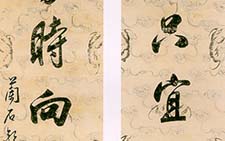 只宜
時向
蘭石